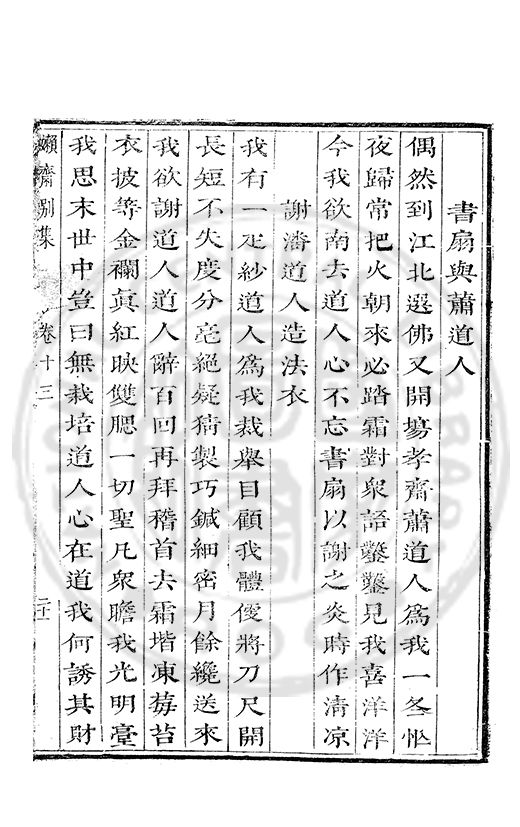 書扇與蕭道人
偶然到江北選佛又開場孝齋蕭道人爲我一冬忙
夜歸常把火朝來必踏霜對衆語鑿鑿見我喜洋洋
今我欲南去道人心不忘書扇以謝之炎時作清凉
謝潘道人造法衣
我有一疋紗道人爲我裁舉目顧我體優將刀尺開
長短不失度分毫絕疑猜製巧鍼細密月餘纔送來
我欲謝道人道人辭百回再拜稽首去霜堦凍莓苔
衣披等金襴眞紅映雙腮一切聖凡衆瞻我光明臺
我思末世中豈曰無栽培道人心在道我何誘其財
嬾齋別集
卷十三